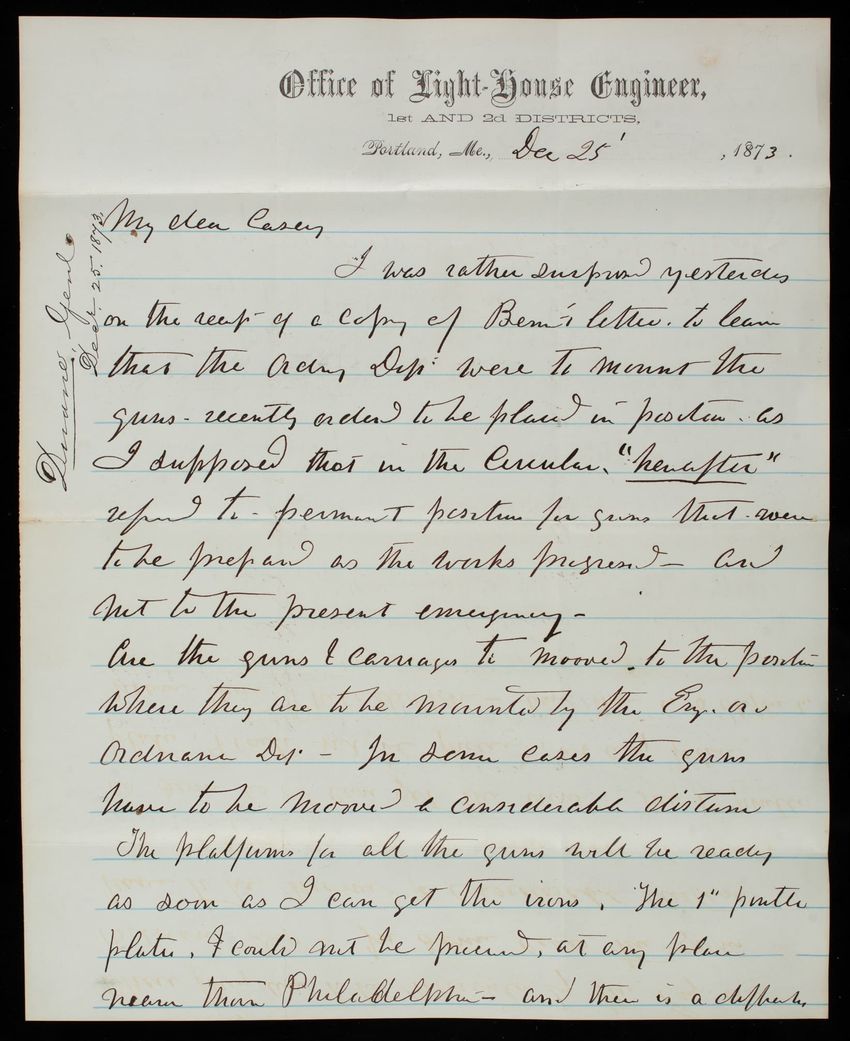 Office of Light-House Engineer,
1st AND 2d DISTRICTS,
Portland, Me., Dec 25' , 1873.
Duane, Genl.
Decr. 25. 1873.
My dear Casey
I was rather surprised yesterday
on the receipt of a copy of Benet's letter. to learn
that the Ordny Dept were to mount the
guns - recently ordered to be placed in position - as
I supposed that in the Circular, "hereafter"
referred to - permanent position for guns that were
to be prepared as the works progressed - and
not to the present emergency -
Are the guns & carriages to mooved, to the position
where they are to be mounted by the Eng. or
Ordnance Dept - In some cases the guns
have to be mooved a considerable distance
The platforms for all the guns will be ready
as soon as I can get the irons. The 1" pintle
plates, I could not be procured, at any place
nearer than Philadelphia - and there is a difficulty